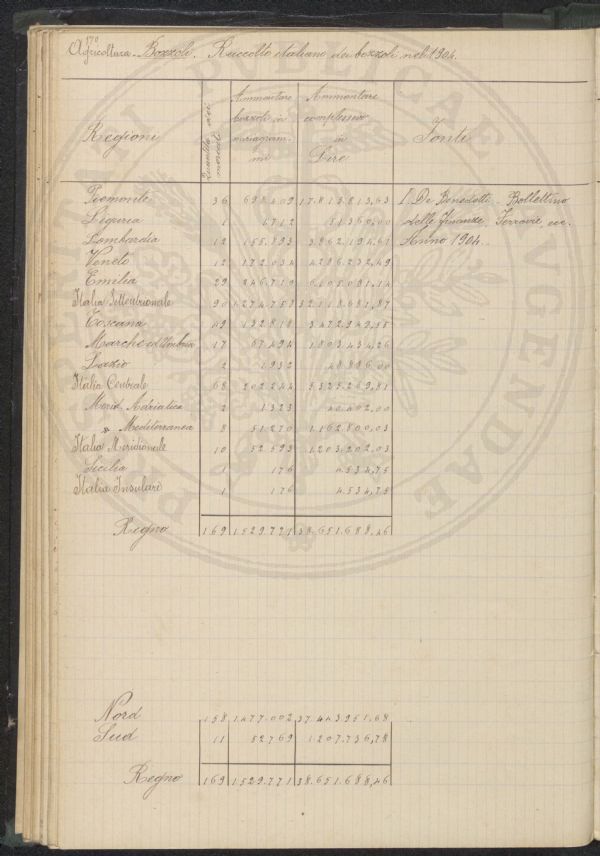 170
Agricoltura - Bozzoli. Raccolto italiano dei bozzoli nel 1904.
Regioni | Quantità dei mercati | Ammontare bozzoli in miriagrammi | Ammontare complessivo in Lire | Fonti
Piemonte 36 698.409 17.813.813,63 I. De Benedetti. Bollettino
Liguria 1 1.712 51.360.00 delle Finanze, Ferrovie, ecc.
Lombardia 12 155.893 3.862.194,61 Anno 1904.
Veneto 12 172.034 4.286.232,49
Emilia 29 246.710 6.105.081,14
Italia Settentrionale 90 1274.758 32.118.681,87
Toscana 49 132.818 3.472.949,55
Marche ed Umbria 17 67.494 1.803.434,26
Lazio 2 1.932 48.886.00
Italia Centrale 68 202.244 5.325.269,81
Merid. Adriatica 2 1.323 40.402,00
" Mediterranea 8 51.270 1.162.800,03
Italia Meridionale 10 52.593 1.203.202,03
Sicilia 1 176 4.534,75
Italia Insulare 1 176 4.534,75
Regno 169 1.529.771 38.651.688,46
Nord 158 1.477.002 37.443.951,68
Sud 11 52.769 1.207.736,78
Regno 169 1.529.771 38.651.688,46